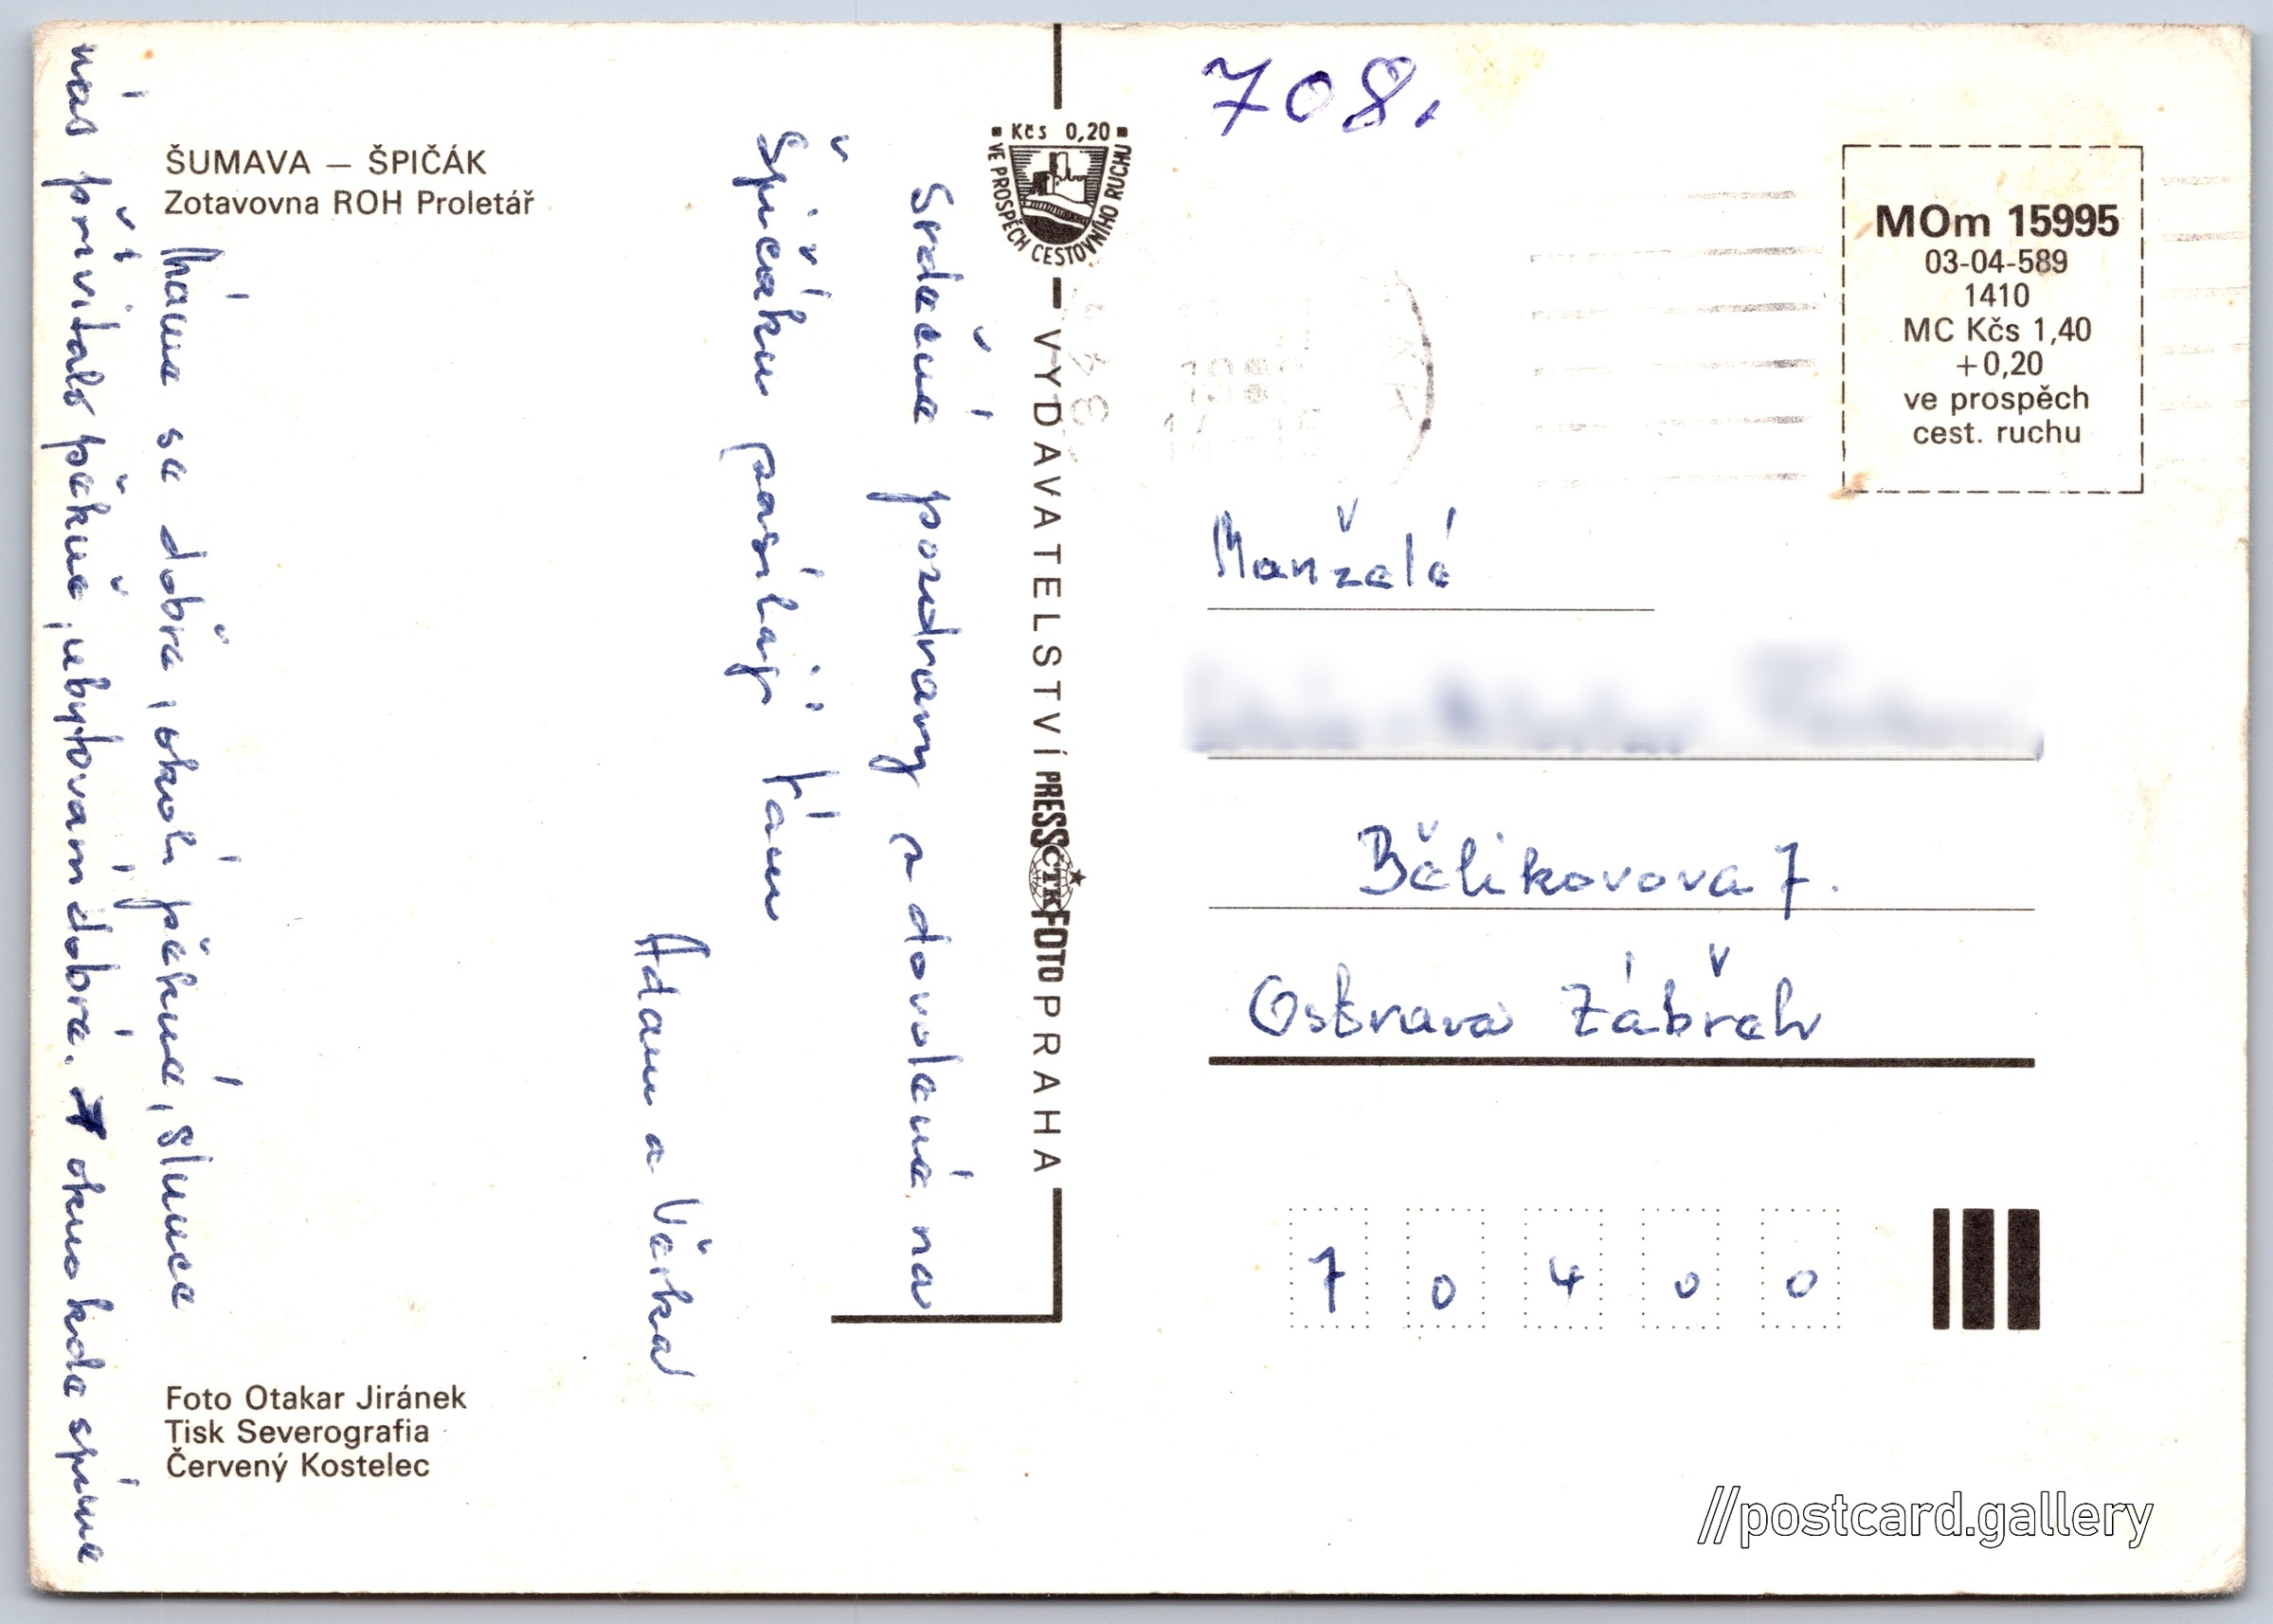 ŠUMAVA — ŠPIČÁK
Zotavovna ROH Proletář
Srdečné pozdravy z dovolené na
Špičáku posílají Vám
Adam a Věrka
Máme se dobře, okolí pěkné, slunce
nás přivítalo pěkně, ubytování dobré. okno kde spíme
Foto Otakar Jiránek
Tisk Severografia
Červený Kostelec
Kčs 0,20
VE PROSPĚCH CESTOVNÍHO RUCHU
VYDAVATELSTVÍ PRESSFOTO PRAHA
ČTK
708.
MOm 15995
03-04-589
1410
MC Kčs 1,40
+0,20
ve prospěch
cest. ruchu
Manželé
Bělikovova 7.
Ostrava Zábřeh
70400
//postcard.gallery